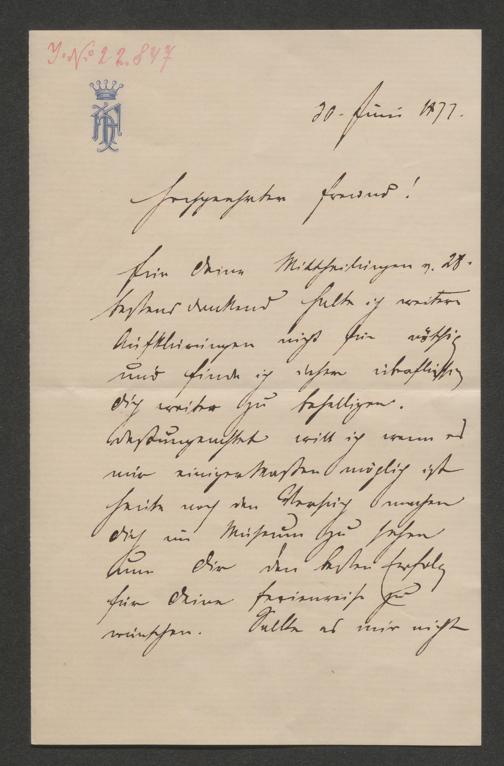 I. No 22.847
30. Juni 1877.
Hochgeehrter Freund!
Für Deine Mittheilungen v. 28.
bestens dankend halte ich weitere
Aufklärungen nicht für nöthig
und finde ich daher überflüssig
Dich weiter zu behelligen.
Destoungeachtet will ich wenn es
mir einigermassen möglich ist
heute noch den Versuch machen
Dich im Museum zu sehen
um Dir den besten Erfolg
für Deine Ferienreise zu
wünschen. Sollte es mir nicht